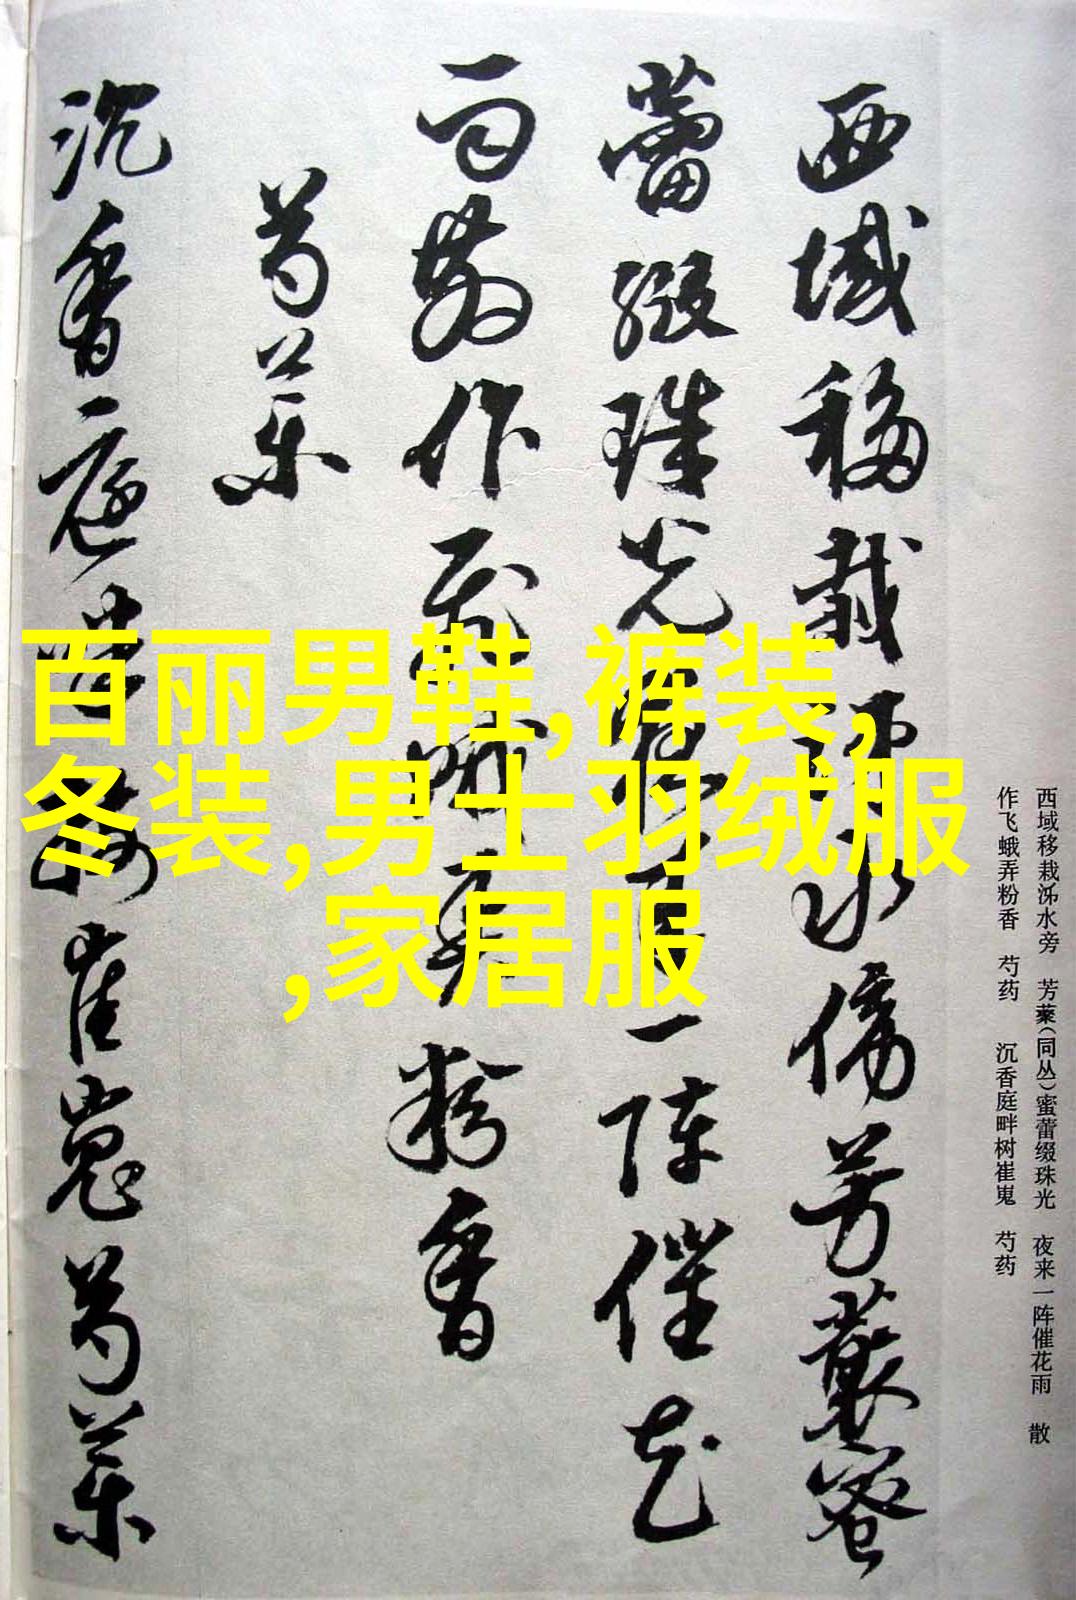 西域移栽㳽水傍芳藂蜜
蕾缀珠光夜来一阵催花
雨散作飞蛾弄粉香
芍药
沉香庭畔树崔嵬芍药
西域移栽㳽水旁　芳藂（同丛）蜜蕾缀珠光　夜来一阵催花雨　散
作飞蛾弄粉香　芍药　沉香庭畔树崔嵬　芍药
百丽男鞋,裤装,
冬装,男士羽绒服
,家居服